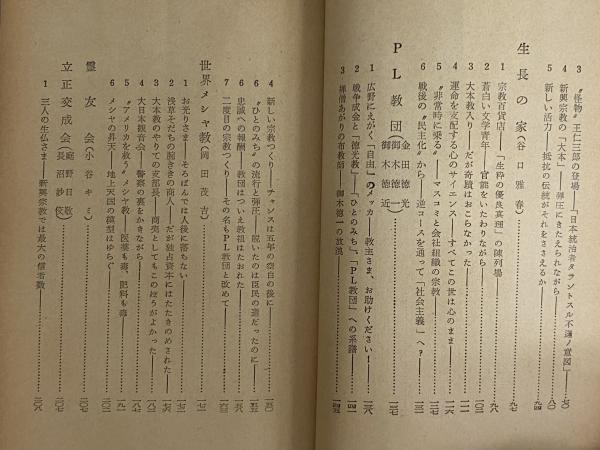 3 〝怪物〟王仁三郎の登場――「日本統治者タラントスル不逞ノ意図」……七〇
4 新興宗教の「大本」――弾圧にきたえられながら……八〇
5 新しい活力――抵抗の伝統がそれをささえるか……九四
生長の家(谷口雅春)……九七
1 宗教百貨店――「生粋の優良真理」の陳列場
2 蒼白い文学青年――官能をいたわりながら
3 大本教入り――だが奇蹟はおこらなかった
4 運命を支配する心のサイエンス――すべてこの世は心のまま
5 〝非常時に乗る〟――マスコミと会社組織の宗教
6 戦後の〝民主化〟から――逆コースを通って「社会主義」へ?
PL教団(金田徳光 御木徳一 御木徳近)……一二七
1 広野にえがく「自由」のメッカ――教主さま、お助けください!……一二八
2 戦争成金と「徳光教」――「ひとのみち」、「PL教団」への系譜
3 禅僧あがりの布教師――御木徳一の放浪……一四五
4 新しい宗教つくり――チャンスは五年の空白の後に……一五〇
5 〝ひとのみち〟の流行と弾圧――説いたのは臣民の道だったのに……一五五
6 忠誠への報酬――教団はついえ教祖はたおれた
7 二度目の宗教つくり――その名もPL教団と改めて……一六五
世界メシヤ教(岡田茂吉)……一七一
1 お光りさま――そろばんでは人後に落ちない
2 浅草そだちの腕ききの商人――だが独占資本にはたたきのめされた
3 大本教のやりての支部長――商売としてもこのほうがよかった
4 大日本観音会――警察の裏をかきながら
5 〝アメリカを救う〟メシヤ教――医薬も毒、肥料も毒
6 メシヤの昇天――地上天国の模型はゆらぐ
霊友会(小谷キミ)……二〇七
立正交成会(庭野日敬 長沼妙佼)……二〇七
1 三人の生仏さま――新興宗教では最大の信者数……二〇八